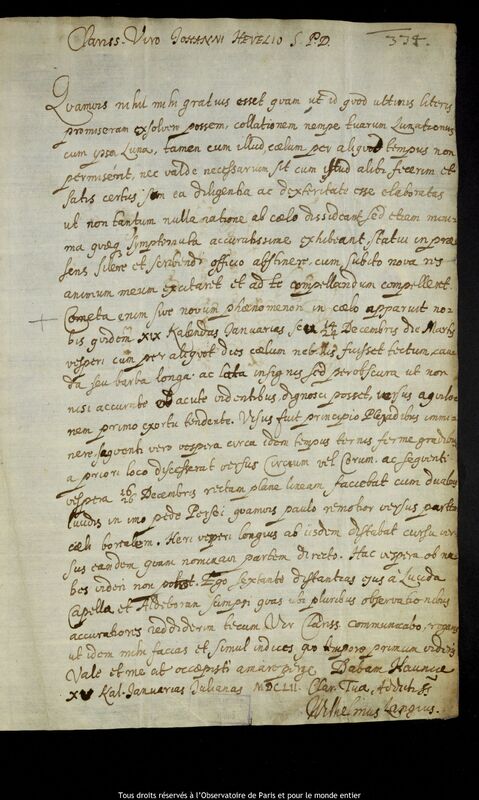 Clariss. Viro JOHANNI HEVELIO S. P. D.
374.
Quamvis nihil mihi gratius esset quam ut id quod ultimis literis
promiseram exsolvere possem, collationem nempe tuarum Lunationum
cum ipsa Luna, tamen cum illud cœlum per aliquot tempus non
permiserit, nec valde necessarium sit cum istud alibi fecerim et
satis certus sim ea diligentia ac dexteritate esse elaboratas
ut non tantum nulla ratione ab cœlo dissideant sed etiam mini-
ma quæq3 symptomata accuratissime exhibeant, statui in præ
sens silere et scribendi officio abstinere, cum subito nova res
animum meum excitaret et ad te compellandum compelleret.
Cometa enim sive novum phœnomenon in cœlo apparuit no-
bis quidem XIX Kalendas Januarias seu 14/24 Decembris die Martis
vesperi cum per aliquot dies cœlum nebulis fuisset tectum, cau
da seu barba longa ac lata insignis sed perobscura ut non
nisi accurate et acute videntibus dignosci posset, versus aquilo-
nem primo exortu tendente. Visus fuit principio Plejadibus immi-
nere, sequenti vero vespera circa idem tempus ternis ferme gradibus
a priori loco discesserat versus Circium vel Corum. ac sequenti
vespera 16/26 Decembris rectam plane lineam faciebat cum duabus
lucidis in imo pede Persei quamvis paulo remotior versus partem
cœli borealem. Heri vesperi longius ab iisdem distabat cursu ver
sus eandem quam nominavi partem directo. Hac vespera ob nu
bes videri non potest. Ego sextante distantias ejus à Lucida
Capella et Aldebaran sumpsi quas ubi pluribus observationibus
accuratiores reddiderim tecum Vir Clariss. communicabo, rogans
ut idem mihi facias et simul indices quo tempore primum videris
Vale et me ut occepisti amare perge Dabam Hauniæ
XV Kal. Januarias Julianas MDCLII. Clar. Tuæ Addictiss
Wilhelmus Langius.
Tous droits réservés à l'Observatoire de Paris et pour le monde entier